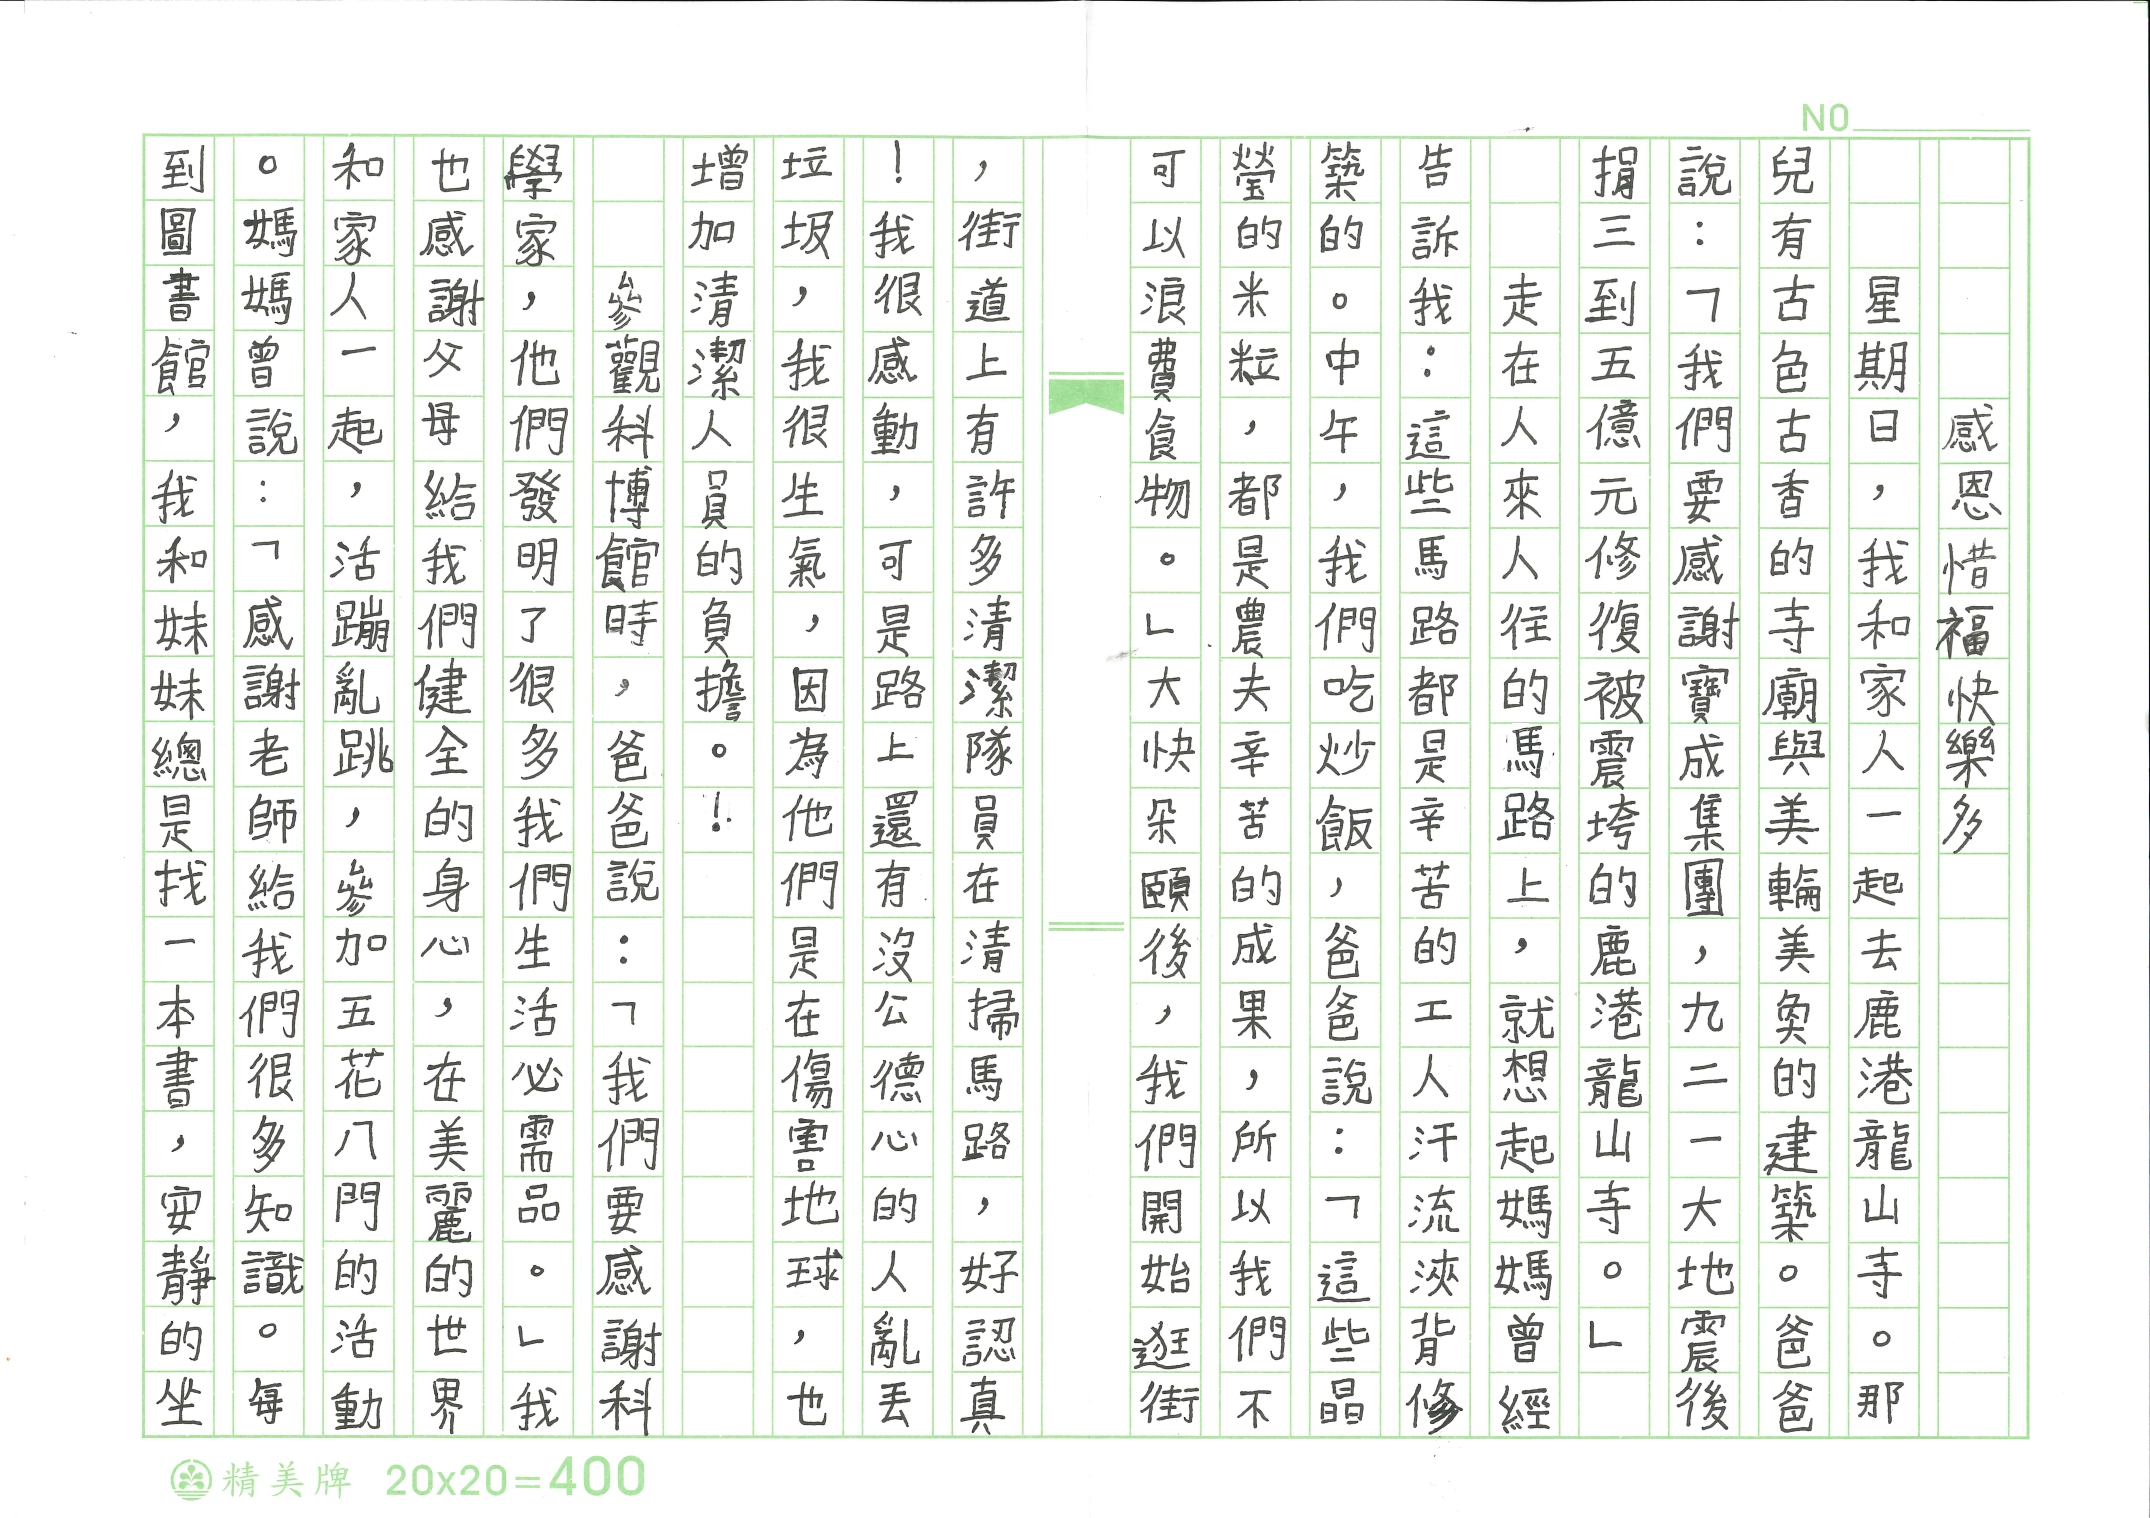 NO
感恩惜福快樂多
星期日，我和家人一起去鹿港龍山寺。那
兒有古色古香的寺廟與美輪美奐的建築。爸爸
說：「我們要感謝寶成集團，九二一大地震後
捐三到五億元修復被震垮的鹿港龍山寺。」
走在人來人往的馬路上，就想起媽媽曾經
告訴我：這些馬路都是辛苦的工人汗流浹背修
築的。中午，我們吃炒飯，爸爸說：「這些晶
瑩的米粒，都是農夫辛苦的成果，所以我們不
可以浪費食物。」大快朵頤後，我們開始逛街
，街道上有許多清潔隊員在清掃馬路，好認真
！我很感動，可是路上還有沒公德心的人亂丟
垃圾，我很生氣，因為他們是在傷害地球，也
增加清潔人員的負擔。！
參觀科博館時，爸爸說：「我們要感謝科
學家，他們發明了很多我們生活必需品。」我
也感謝父母給我們健全的身心，在美麗的世界
和家人一起，活蹦亂跳，參加五花八門的活動
。媽媽曾說：「感謝老師給我們很多知識。每
到圖書館，我和妹妹總是找一本書，安靜的坐
精美牌 20x20=400